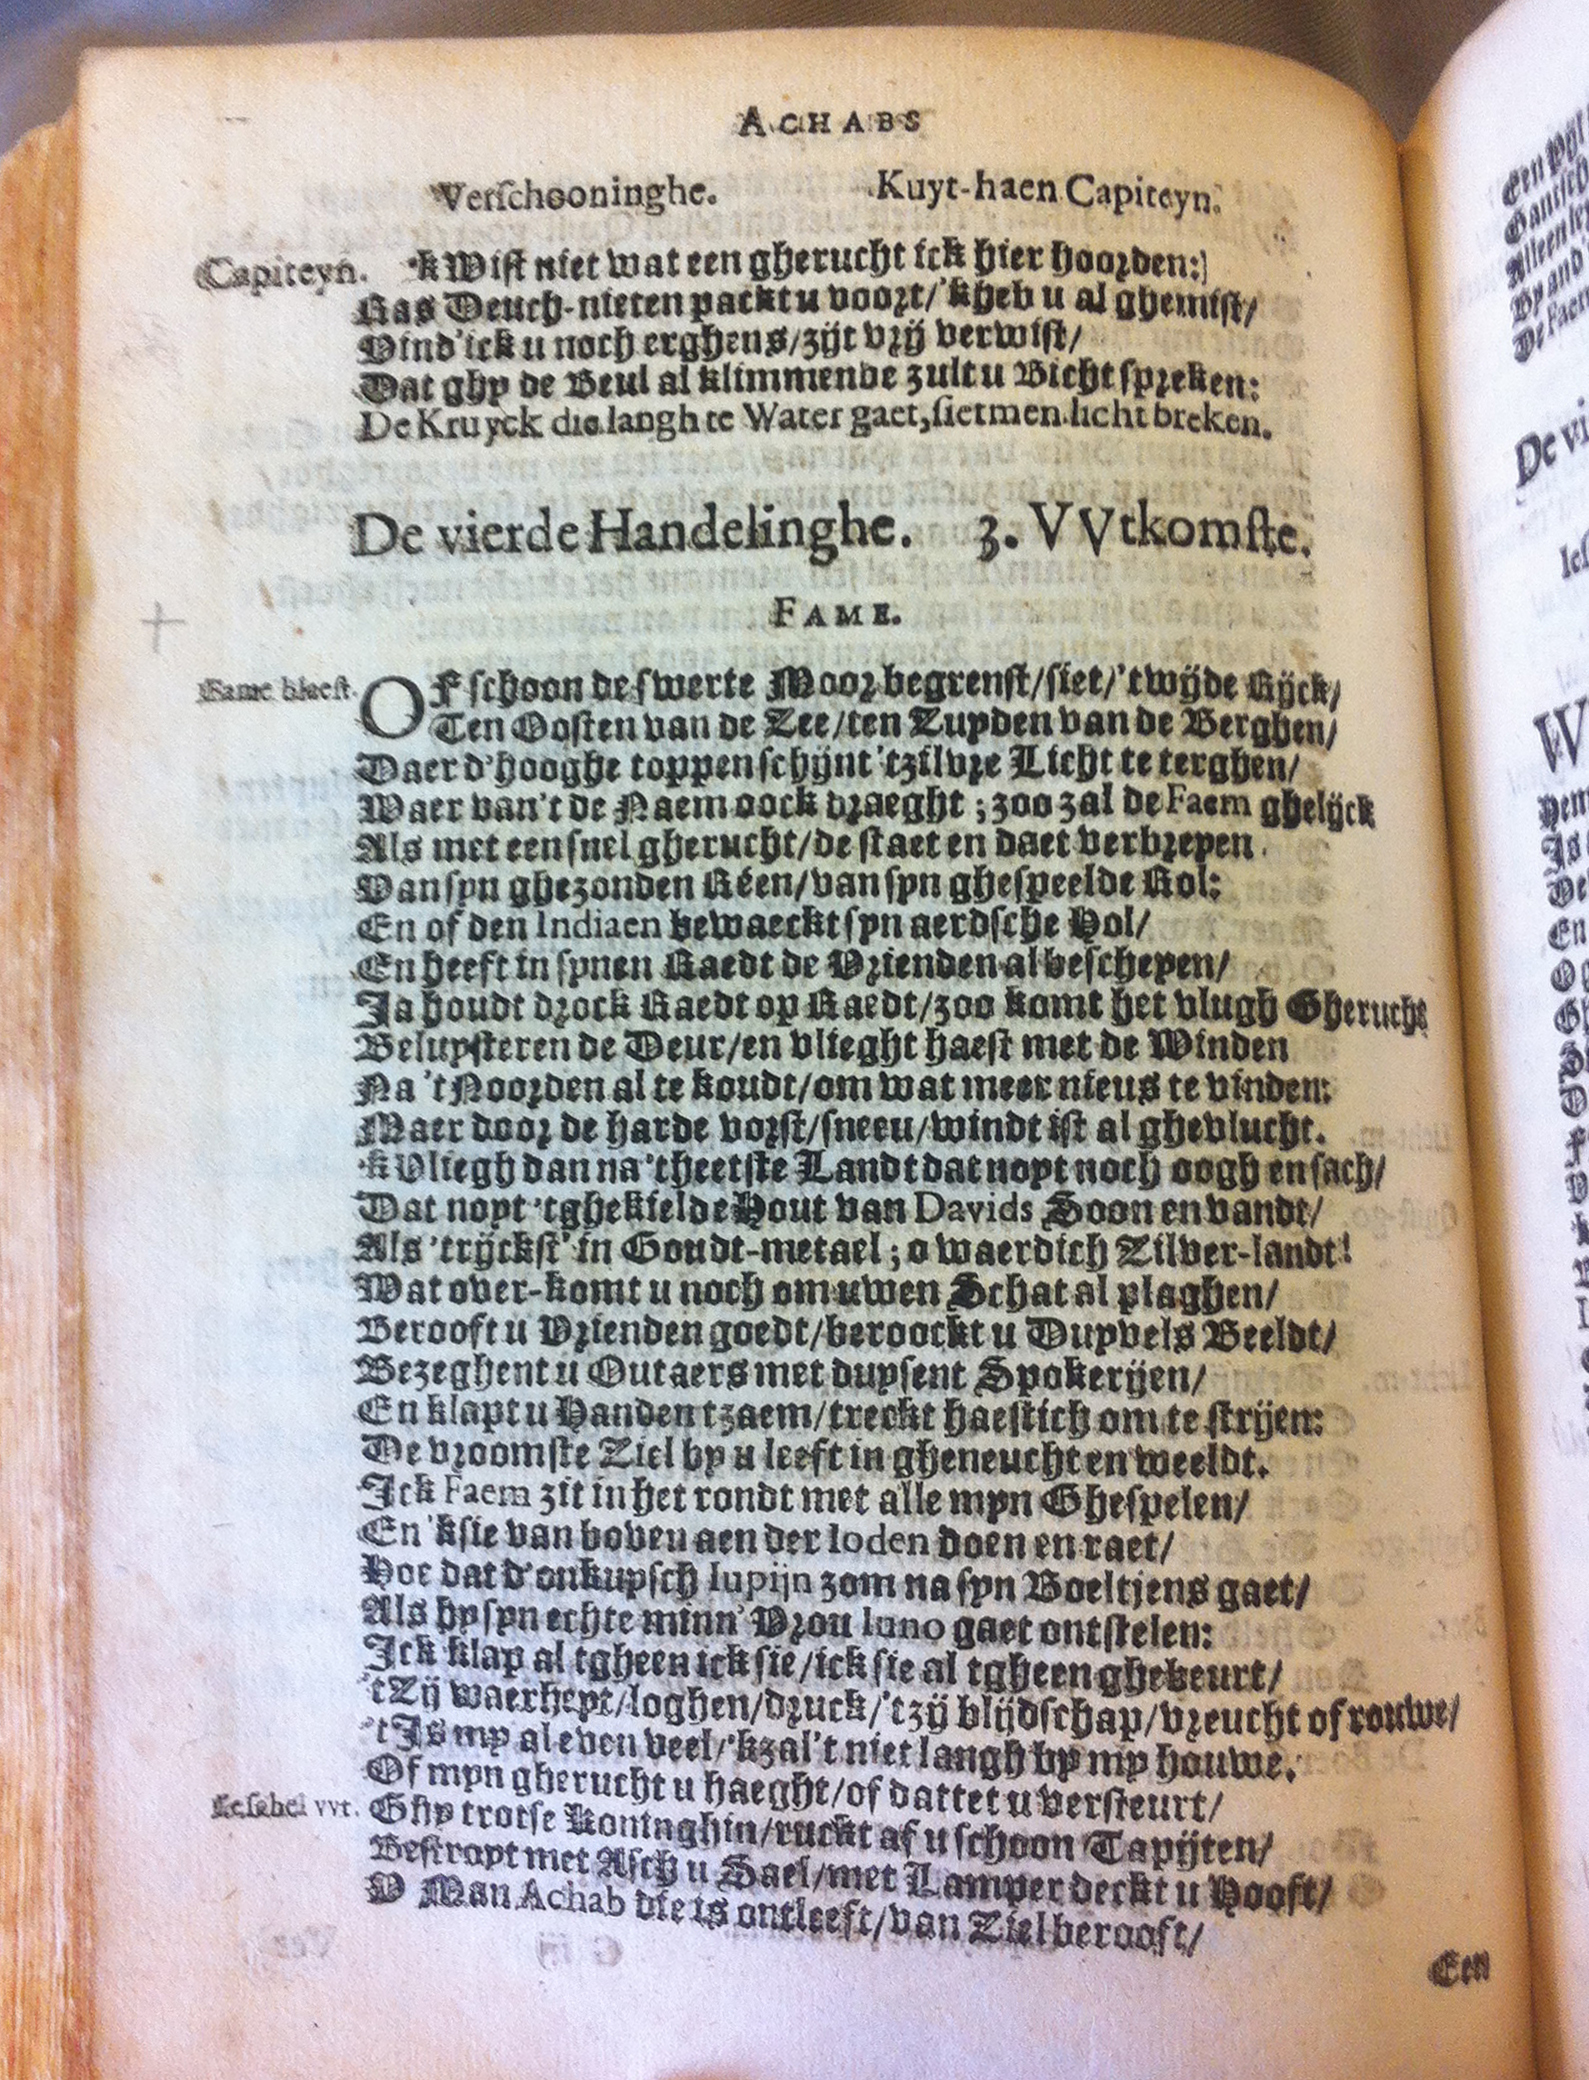 ACHABS
Verschooninghe. Kuyt-haen Capiteyn.
Capiteyn. 'kWist niet wat een gherucht ick hier hoorden:
Ras Deuch-nieten packt u voort/'kheb u al ghemist/
Vind'ick u noch erghens/zijt vrij verwist/
Dat ghy de Beul al klimmende zult u Bicht spreken:
De Kruyck die langh te Water gaet, siet men licht breken.
De vierde Handelinghe. 3. VVtkomste.
FAME.
Fame blaest. OF schoon de swerte Moor begrenst/siet/'twijde Rijck/
Ten Oosten van de Zee/ten Zuyden van de Berghen/
Daer d'hooghe toppen schijnt 'tzilvre Licht te terghen/
Waer van't de Naem oock draeght; zoo zal de Faem ghelijck
Als met een snel gherucht/de staet en daet verbreyen
Van syn ghezonden Réen/van syn ghespeelde Rol:
En of den Indiaen bewaeckt syn aerdsche Hol/
En heeft in synen Raedt de Vrienden al bescheyen/
Ja houdt drock Raedt op Raedt/zoo komt het vlugh Gherucht
Beluysteren de Deur/en vlieght haest met de Winden
Na 't Noorden al te koudt/om wat meer nieus te vinden:
Maer door de harde vorst/sneeu/windt ist al ghevlucht.
'kVliegh dan na 'theetste Landt dat noyt noch oogh en sach/
Dat noyt 'tghekielde Hout van Davids Soon en vandt/
Als 'trijckst' in Goudt-metael; o waerdich Zilver-landt!
Wat over-komt u noch om uwen Schat al plaghen/
Berooft u Vrienden goedt/beroockt u Duyvels Beeldt/
Bezeghent u Outaers met duysent Spokerijen/
En klapt u Handen tzaem/treckt haestich om te strijen:
De vroomste Ziel by u leeft in gheneucht en weeldt.
Ick Faem zit in het rondt met alle myn Ghespelen/
En 'ksie van boven aen der Ioden doen en raet/
Hoe dat d'onkuysch Iupijn zom na syn Boeltjens gaet/
Als hy syn echte minn' Vrou Iuno gaet ontstelen:
Ick klap al tgheen ick sie/ick sie al tgheen ghebeurt/
'tZij waerheyt/loghen/druck/'tzij blijdschap/vreucht of rouwe/
'tIs my al even veel/'kzal't niet langh by my houwe.
Of myn gherucht u haeght/of dattet u versteurt/
Iesabel vvt. Ghy trotse Koninghin/ruckt af u schoon Tapijten/
Bestroyt met Asch u Sael/met Lamper deckt u Hooft/
V Man Achab die is ontleeft/van Ziel berooft/
Een